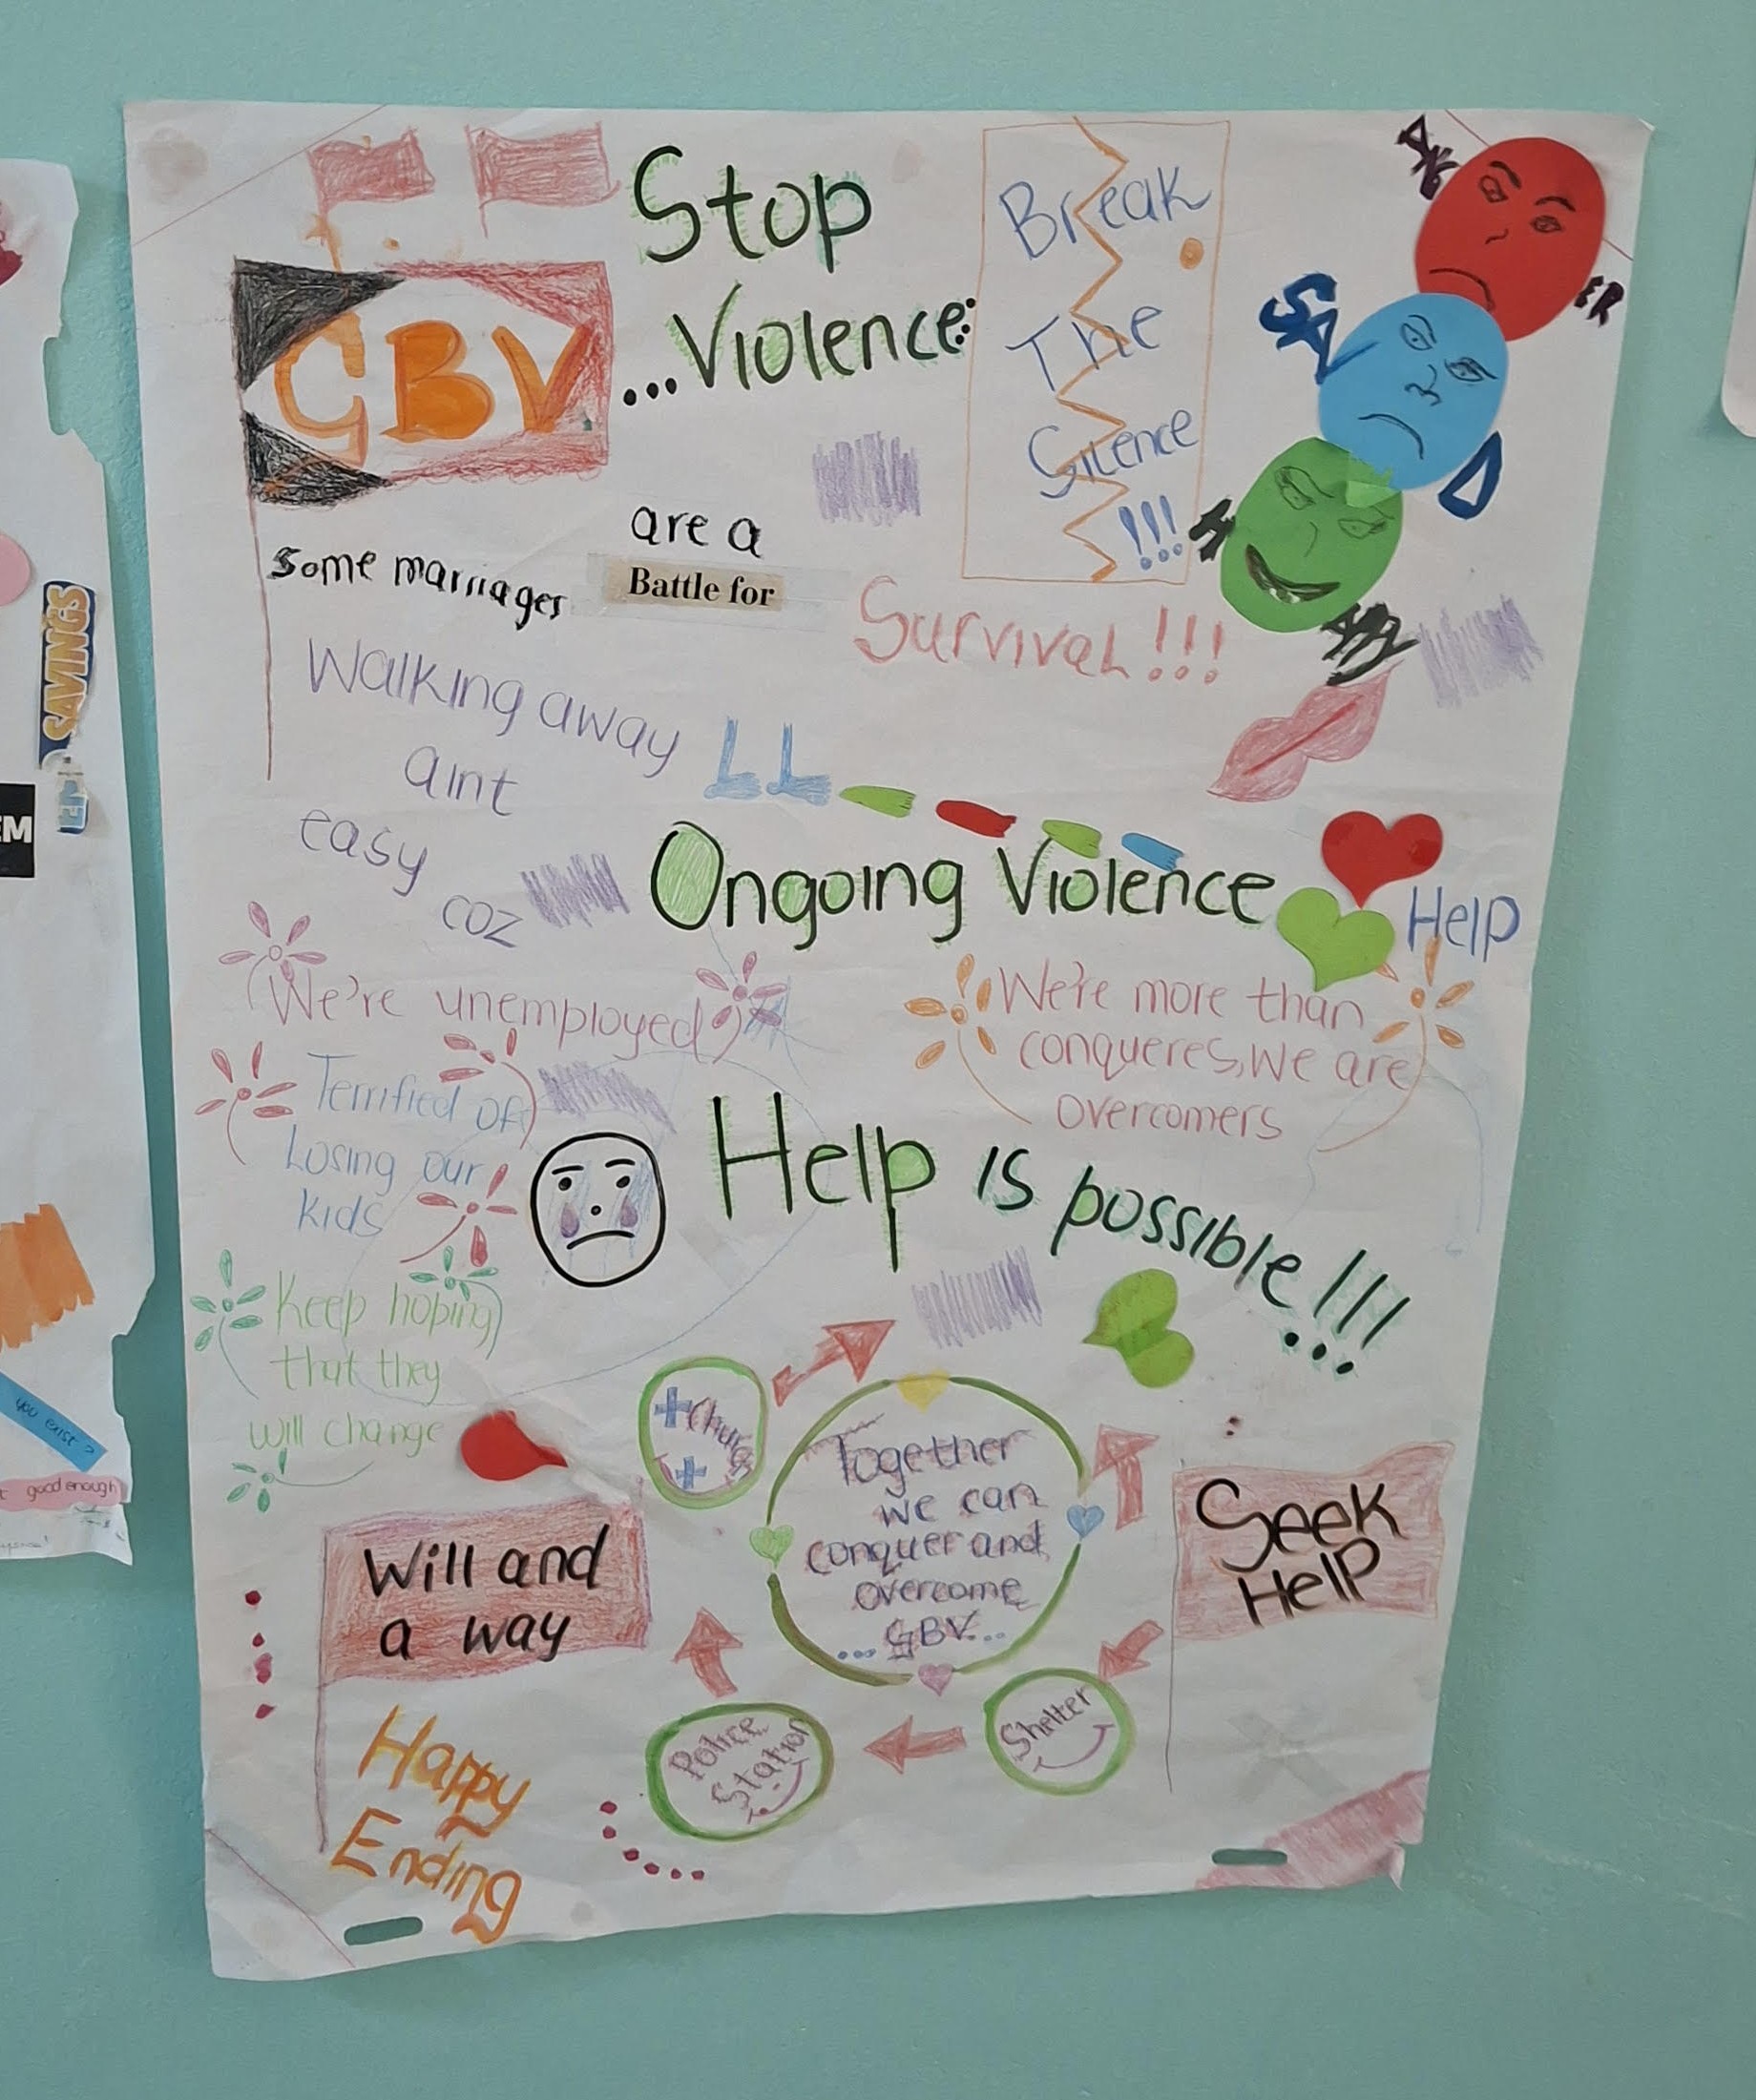 Stop
...Violence:
GBV
Break
The
Silence
!!!
SAD
some marriages
are a
Battle for
Survival!!!
Walking away
aint
easy
coz
Ongoing Violence
Help
We're unemployed
Terrified of
Losing our
kids
Keep hoping
that they
will change
We're more than
conqueres, We are
overcomers
Help is possible!!!
Church
Together
we can
conquer and
overcome
...GBV...
Shelter
Police
Station
Seek
Help
Will and
a way
Happy
Ending
SAVINGS
EM
you exist?
good enough